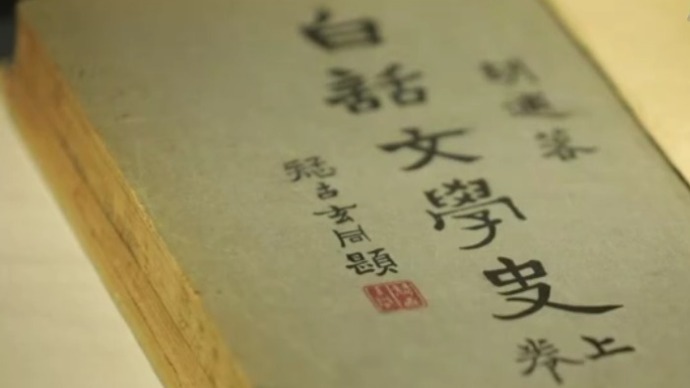 胡適著
白話文學史
上卷
疑古玄同題